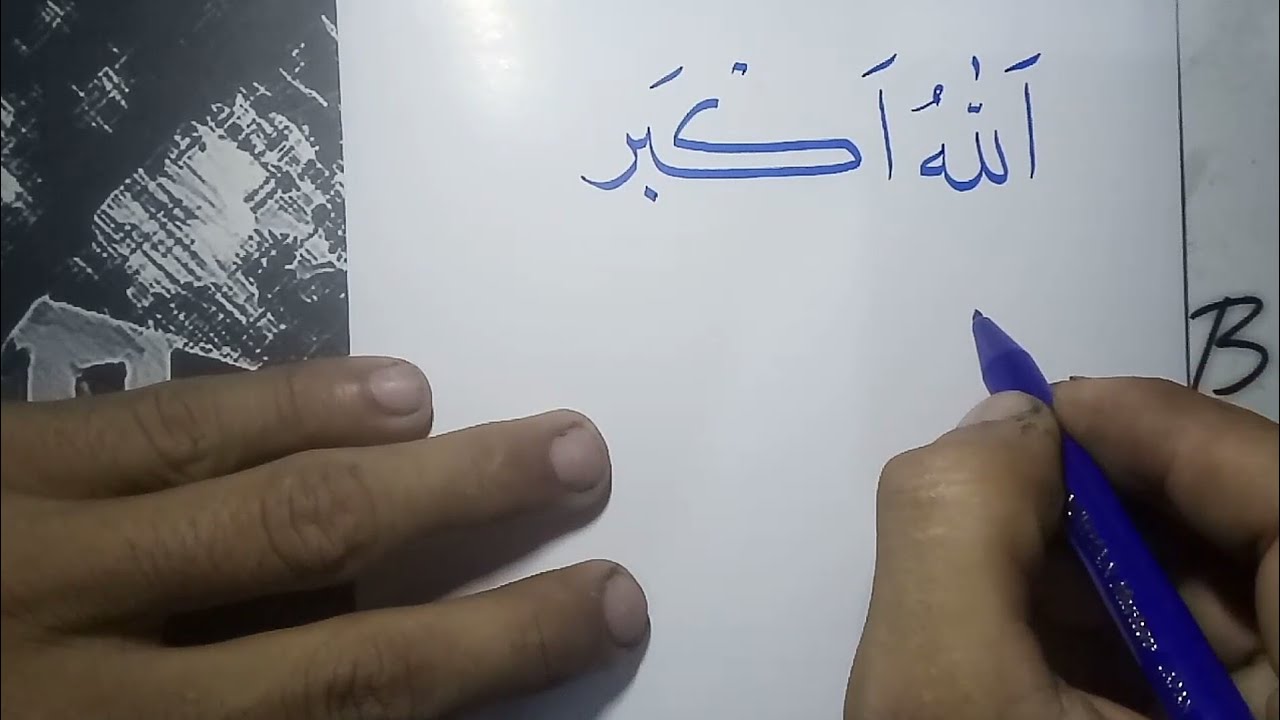 اَللّٰهُ اَكْبَر
B